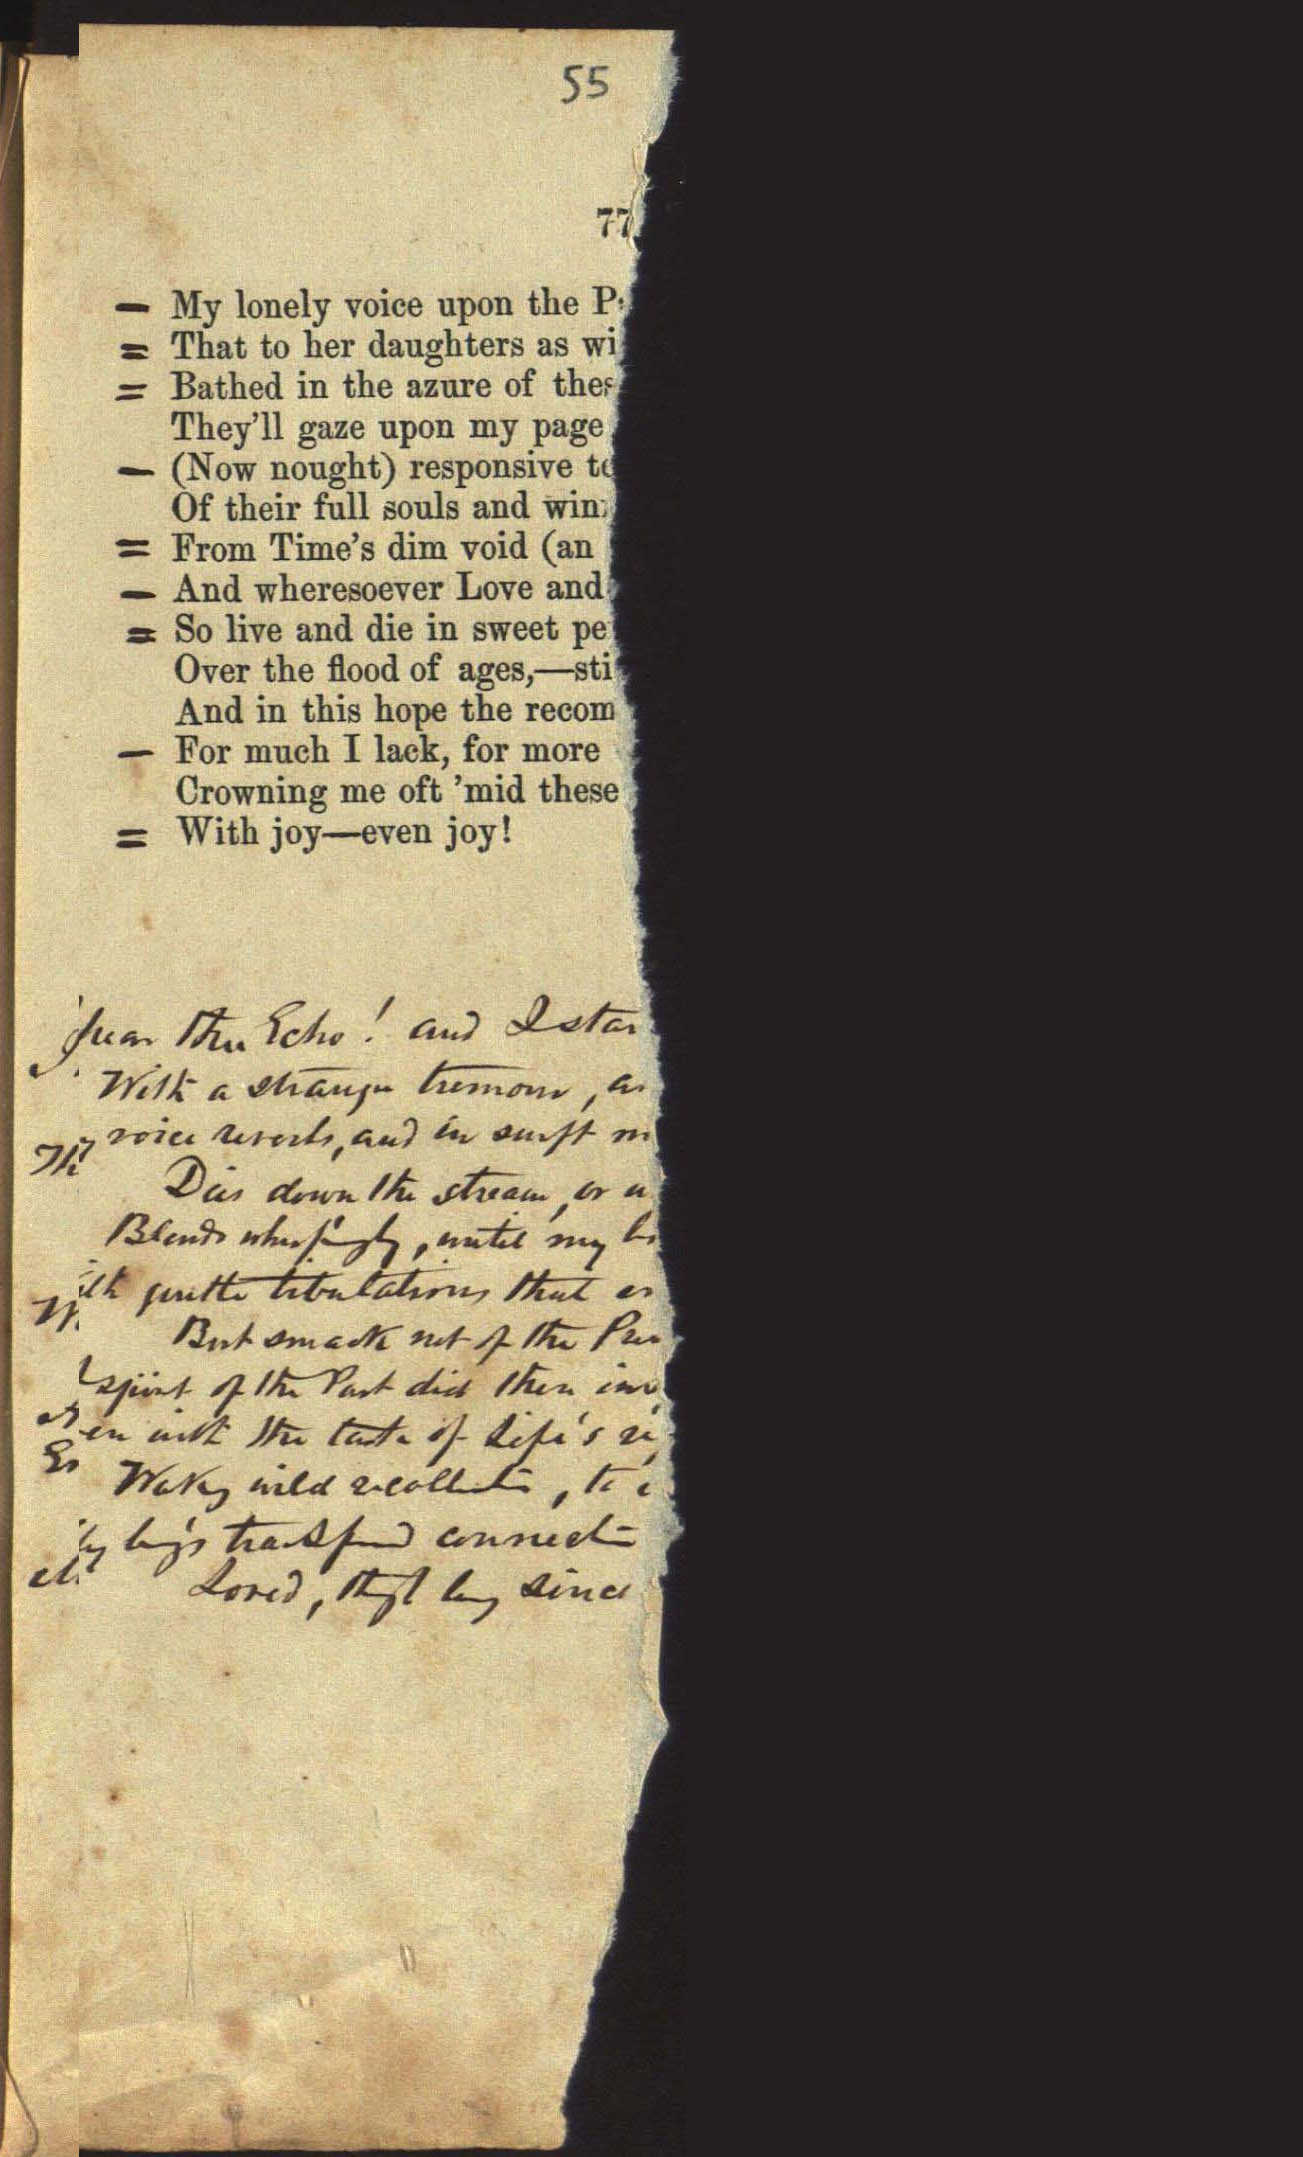 55
77
— My lonely voice upon the P
= That to her daughters as wi
= Bathed in the azure of thes
They'll gaze upon my page
— (Now nought) responsive to
Of their full souls and win
= From Time's dim void (an
— And wheresoever Love and
= So live and die in sweet pe
Over the flood of ages,—sti
And in this hope the recom
— For much I lack, for more
Crowning me oft 'mid these
= With joy—even joy!
the Echo! and I star
With a strange tremour, an
voice reverts, and in swift m
Dies down the stream, or
Blends, until my
gentle tribulations that
But smack not of the Pre
spirit of the Past did then
with the taste of Life's
Wakes wild recollection, to
connection
Loved, long since